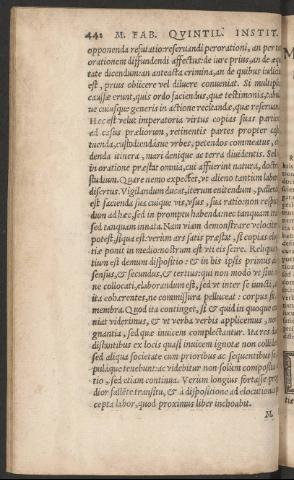 442 M. FAB. QVINTIL. INSTIT.
opponenda refutatio: reseruandi perorationi, an per to
orationem diffundendi affectus: de iure prius, an de æqui
tate dicendum: an anteacta crimina, an de quibus iudiciū
est, prius obiicere vel diluere conueniat. Si multiplices
caussæ erunt, quis ordo faciendus, quæ testimonia, tabulæ
ue cuiusque generis in actione recitandæ, quæ reseruandæ
Hæc est velut imperatoria virtus copias suas partientis
ad casus præliorum, retinentis partes propter castella
tuenda, custodiendásue vrbes, petendos commeatus, obsi
denda itinera, mari denique ac terra diuidentis. Sed hæc
in oratione præstat omnia, cui affuerint natura, doctrina,
studium. Quare nemo expectet, vt alieno tantùm labore sit
disertus. Vigilandum ducat, iterum enitendum, pallendum
est: facienda sua cuique vis, vsus, sua ratio: non respicien
dum ad hæc, sed in promptu habenda: nec tanquam tradita,
sed tanquam innata. Nam viam demonstrare velociter
potest, si qua est: verùm ars satis præstat, si copias eloquen
tiæ ponit in medio: nostrum est vti eis scire. Reliquum par
tium est demum dispositio: & in his ipsis primus aliquis
sensus, & secundus, & tertius: qui non modò vt sint ordi
ne collocati, elaborandum est, sed vt inter se iuncti, atque
ita cohærentes, ne commissura pelluceat: corpus sit, non
membra. Quod ita continget, si & quid in quoque conue
niat viderimus, & vt verba verbis applicemus, non pu
gnantia, sed quæ inuicem complectantur. Ita res diuersæ
distantibus ex locis quasi inuicem ignotæ non collidentur,
sed aliqua societate cum prioribus ac sequentibus se co
pulæque tenebunt: ac videbitur non solùm composita ora
tio, sed etiam continua. Verùm longius fortasse progre
dior fallēte transitu, & à dispositione ad elocutionis præ
cepta labor, quod proximus liber inchoabit.
M.